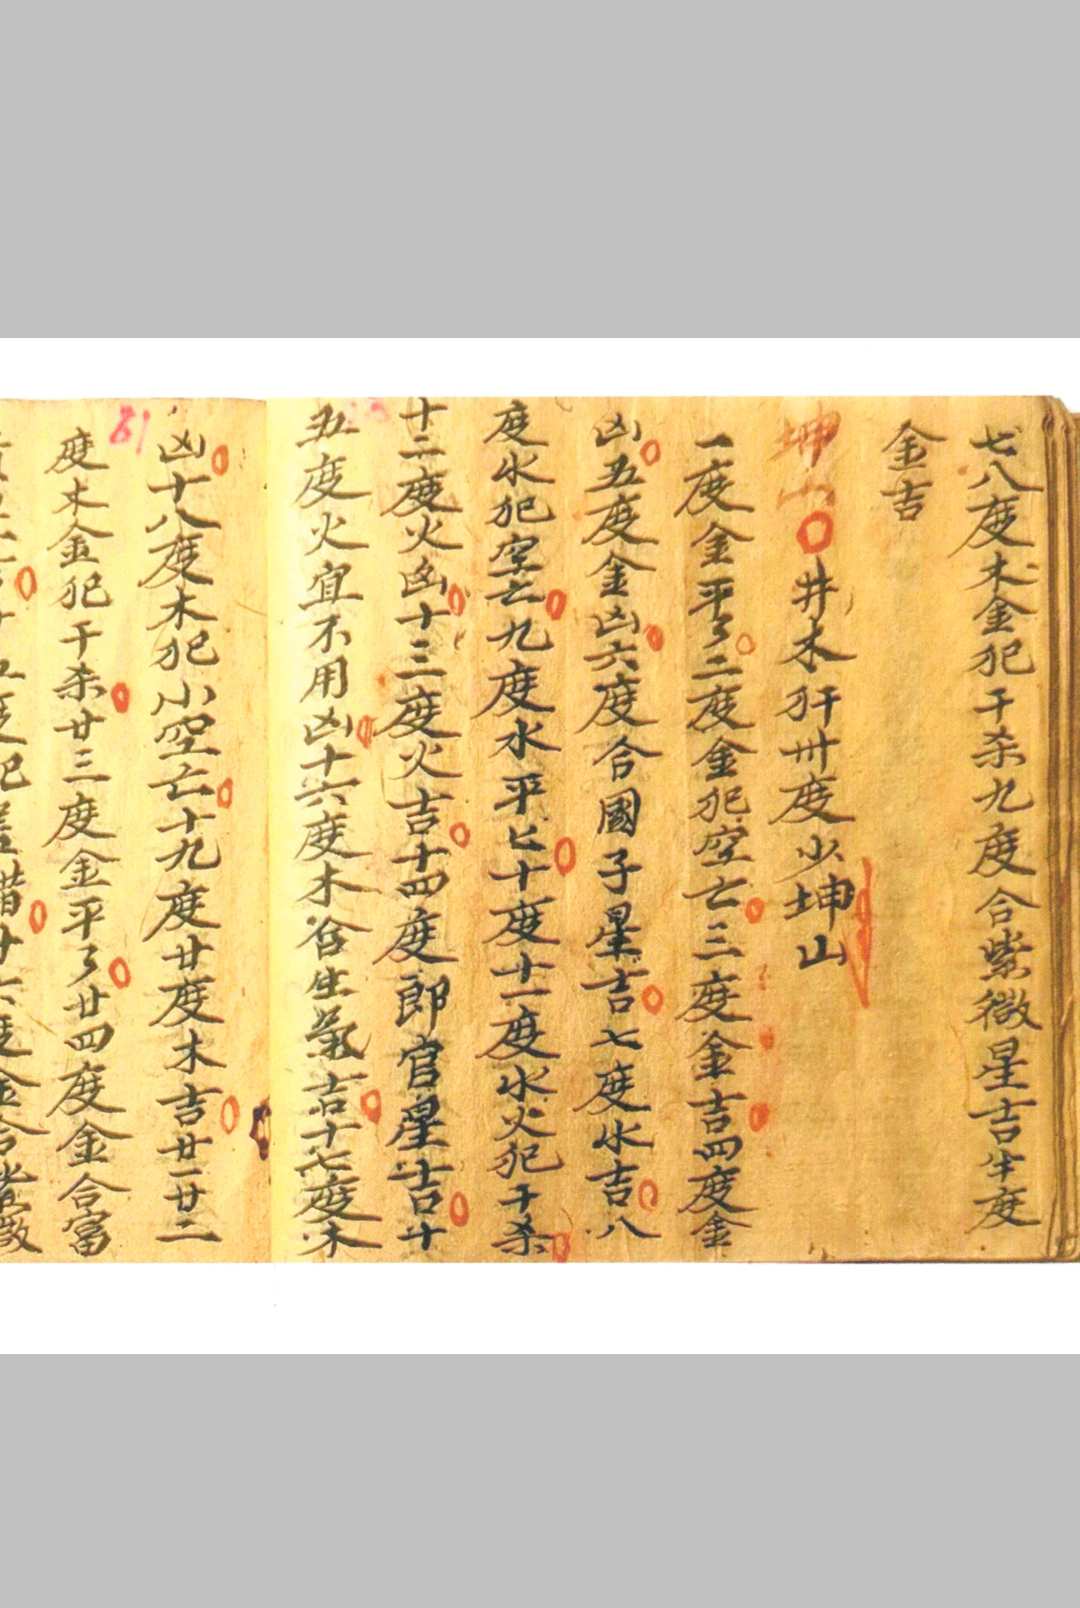 七八度木金犯干杀九度合紫微星吉半度
金吉
坤山井木犴卅度少坤山
一度金平々二度金犯空亡三度金吉四度金
凶五度金凶六度合國子星吉七度水吉八
度水犯空亡九度水平匕十度十一度水火犯干杀
十二度火凶十三度火吉十四度郎官星吉十
五度火宜不用凶十六度木谷生氣吉十七度木
81
凶十八度木犯小空亡十九度廿度木吉廿一廿二
度木金犯干杀廿三度金平々廿四度金合富